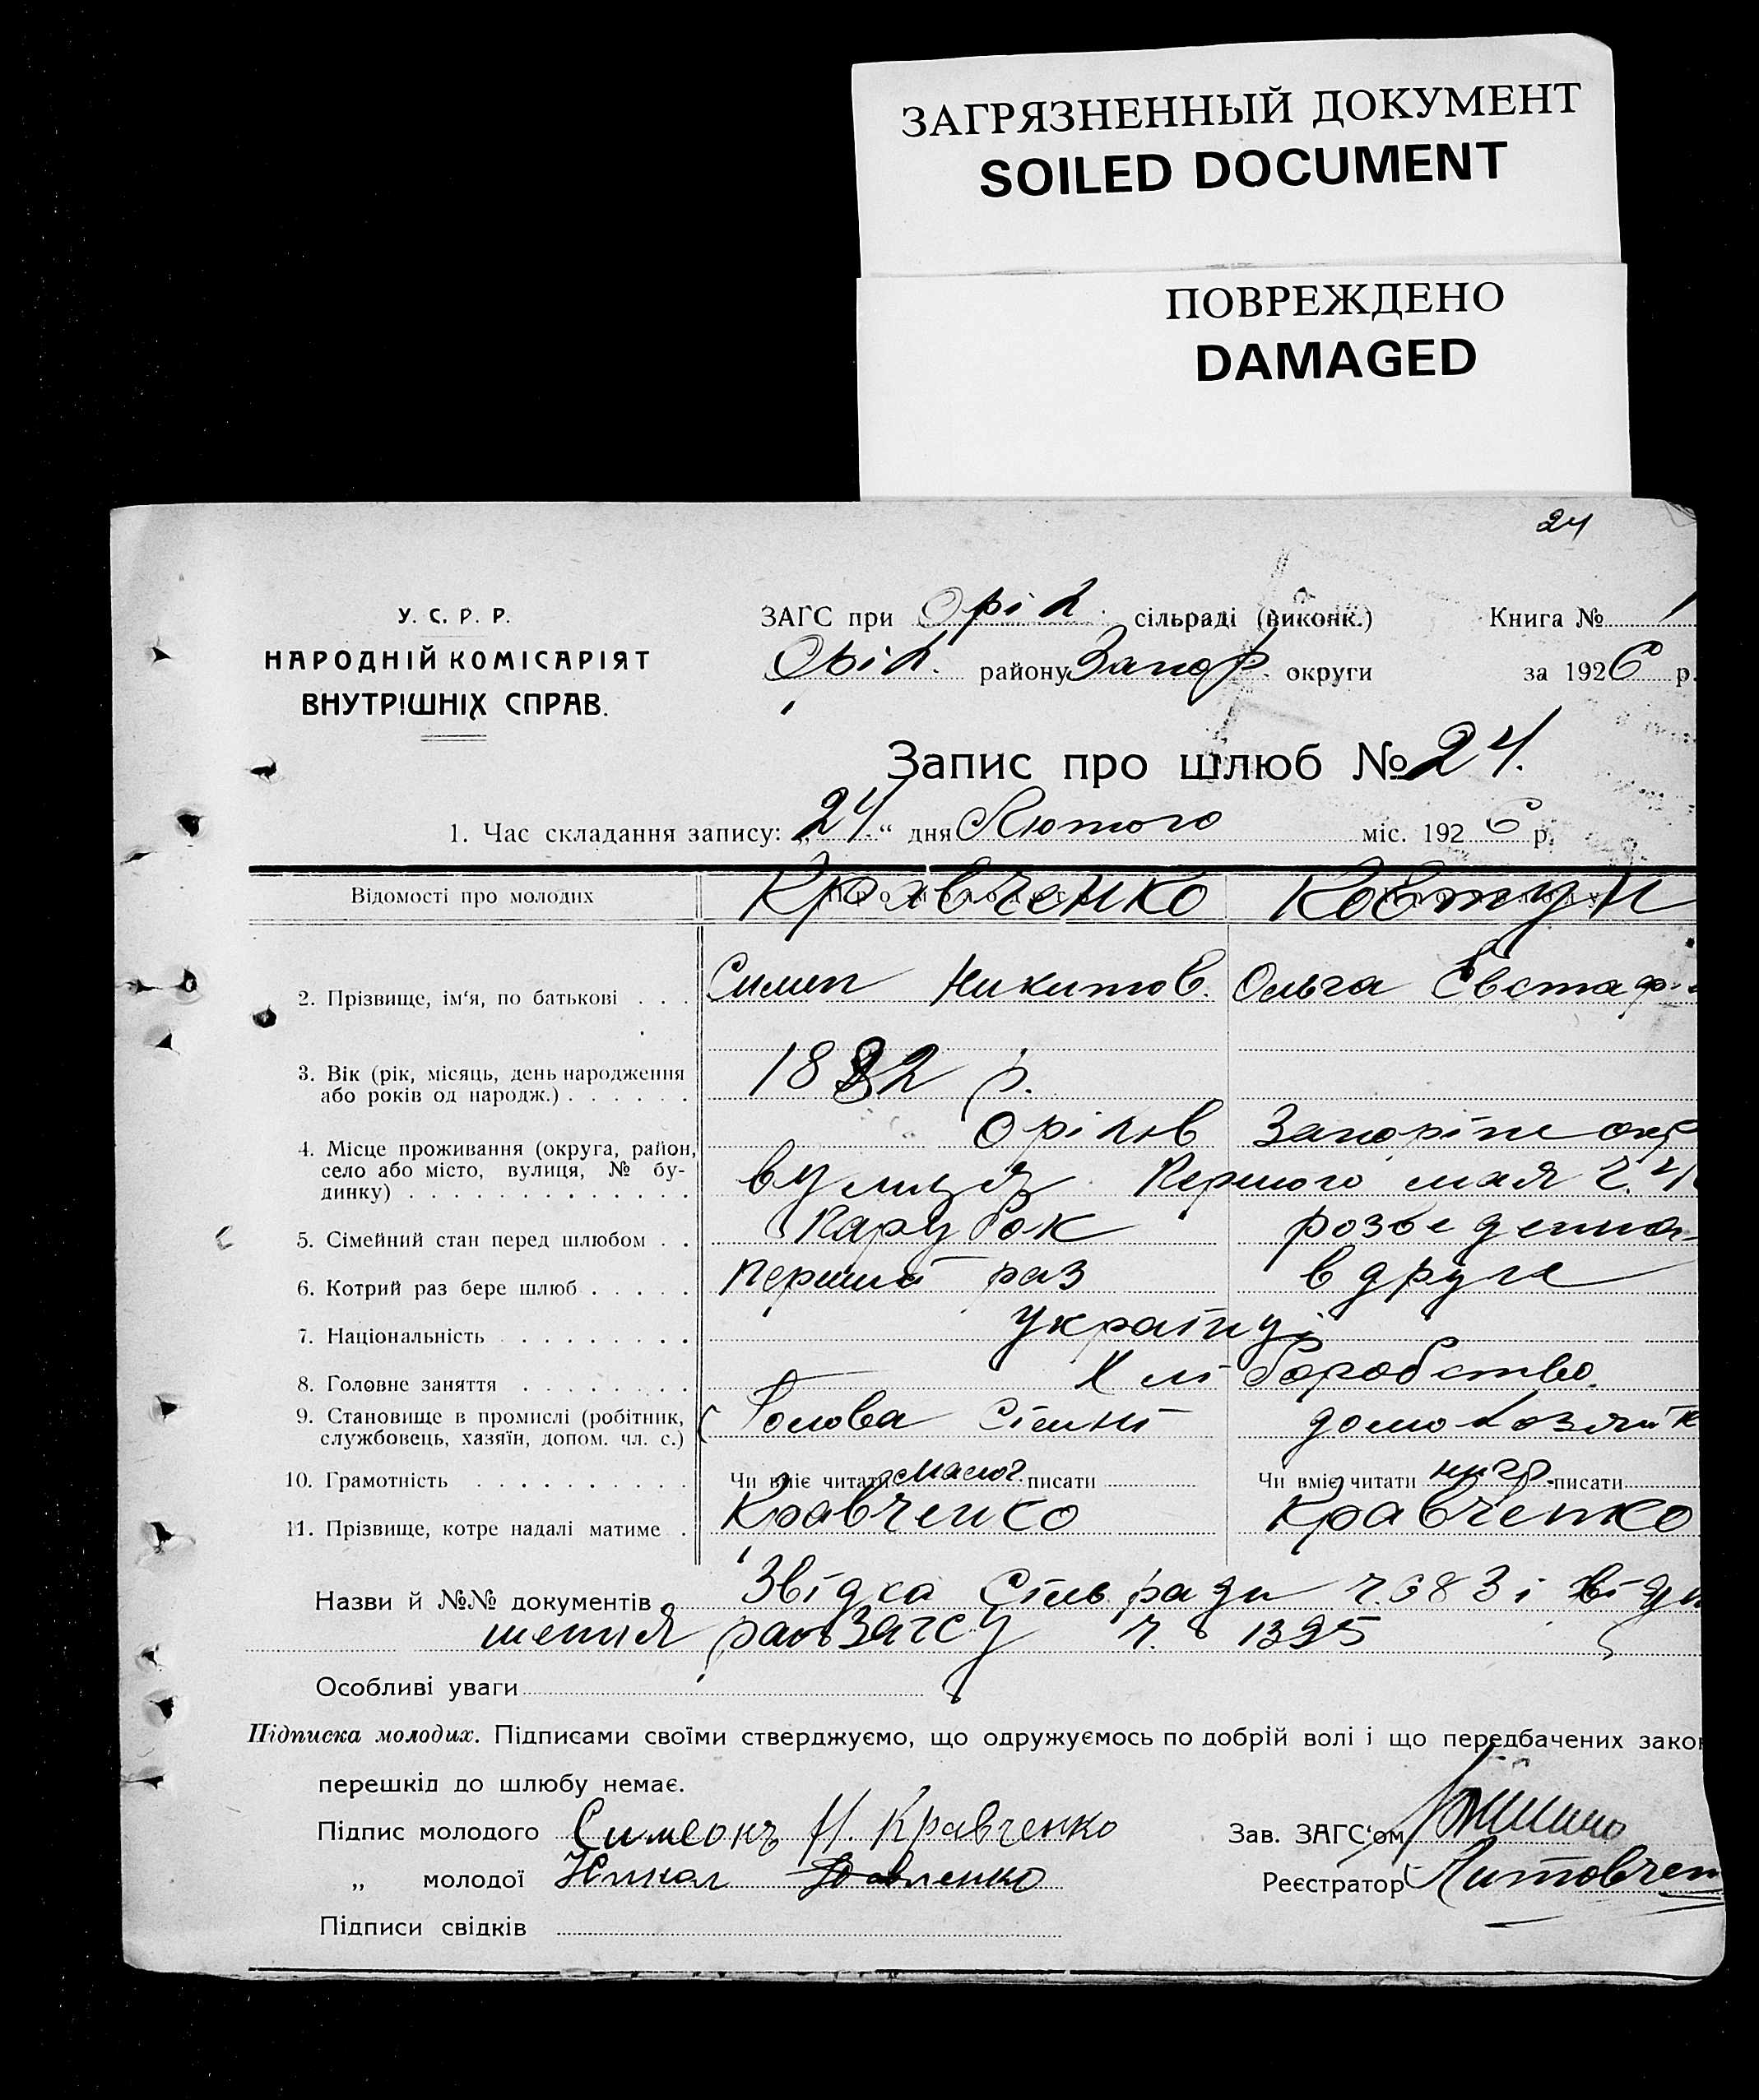 ЗАГРЯЗНЕННЫЙ ДОКУМЕНТ
SOILED DOCUMENT
ПОВРЕЖДЕНО
DAMAGED
24
У. С. Р. Р.
НАРОДНІЙ КОМІСАРІЯТ
ВНУТРІШНІХ СПРАВ.
ЗАГС при Оріх. сільраді (виконк.) Книга № 1
Оріх. району Запор. округи за 1926 р.
Запис про шлюб № 24.
1. Час складання запису: „24“ дня Лютого міс. 1926 р.
Відомості про молодих Кравченко Ковтун
2. Прізвище, ім'я, по батькові . . . Симеп Никитов. Ольга Евстаф
3. Вік (рік, місяць, день народження 1882 р.
або років од народж.) . . . . . .
4. Місце проживання (округа, район, Оріхів Запоріже окр
село або місто, вулиця, № бу- вулиця Першого мая ч.
динку) . . . . . . . . . . . . .
5. Сімейний стан перед шлюбом . . Парубок розведенна
6. Котрий раз бере шлюб . . . . . перший раз в друге
7. Національність . . . . . . . . українці
8. Головне заняття . . . . . . . . Хліборобство.
9. Становище в промислі (робітник, Голова сімні домохозяйк
службовець, хазяїн, допом. чл. с.)
10. Грамотність . . . . . . . . . . Чи вміє читати малог. писати Чи вміє читати нигр. писати
11. Прізвище, котре надалі матиме . Кравченко Кравченко
Назви й №№ документів Звідка Сільради ч. 683 і
шення райЗагсу ч. 1395
Особливі уваги
Підписка молодих. Підписами своїми стверджуємо, що одружуємось по добрій волі і що передбачених зако
перешкід до шлюбу немає.
Підпис молодого Симеонъ Н. Кравченко Зав. ЗАГС'ом
„ молодої Реєстратор Литовчен
Підписи свідків